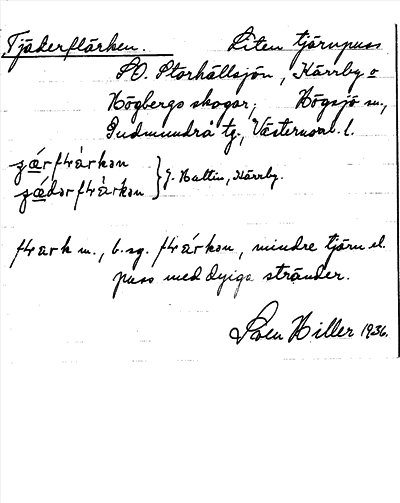 Tjäderflärken. Liten tjärnpuss
SO. Storhällsjön, Kärrby o
Högbergs skogar, Högsjö sn,
Gudmundrå tg., Västernorrl. l.
J. Hallin, Kärrby.
flark m., b. sg. mindre tjärn el.
puss med dyiga stränder.
Sven Hiller 1936.